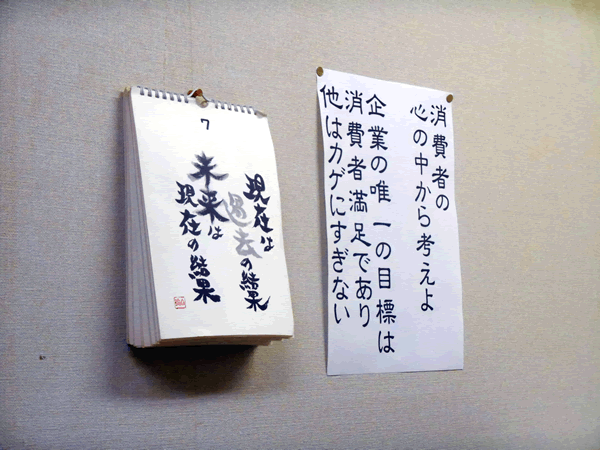 7
現在は
過去の結果
未来は
現在の結果
消費者の
心の中から考えよ
企業の唯一の目標は
消費者満足であり
他はカゲにすぎない